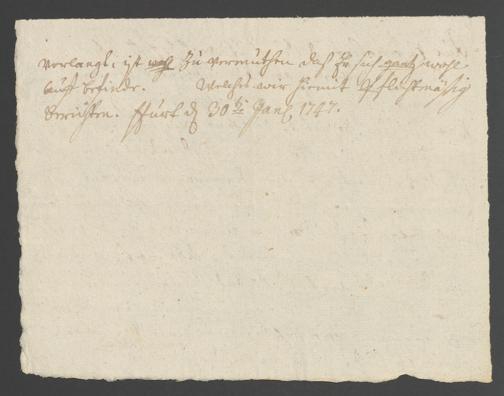 verlangt; ist wohl zu vermuthen daß Er sich gantz wohl
auff befinde. Welches wir hiemit Pflichtmäsig
Berichten. ffurt d 30 ti Jan 1747.